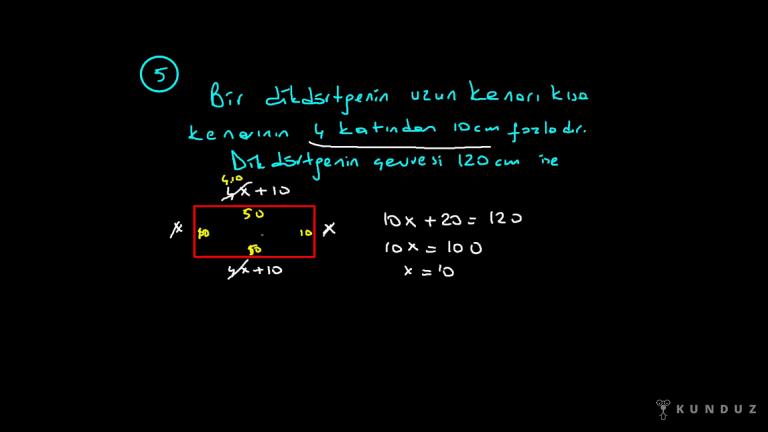 5
Bir dikdörtgenin uzun kenarı kısa
kenarının 4 katından 10cm fazladır.
Dikdörtgenin çevresi 120cm ise
4.10
4x + 10
50
x 10 10 x
50
4x + 10
10x + 20 = 120
10x = 100
x = 10
KUNDUZ